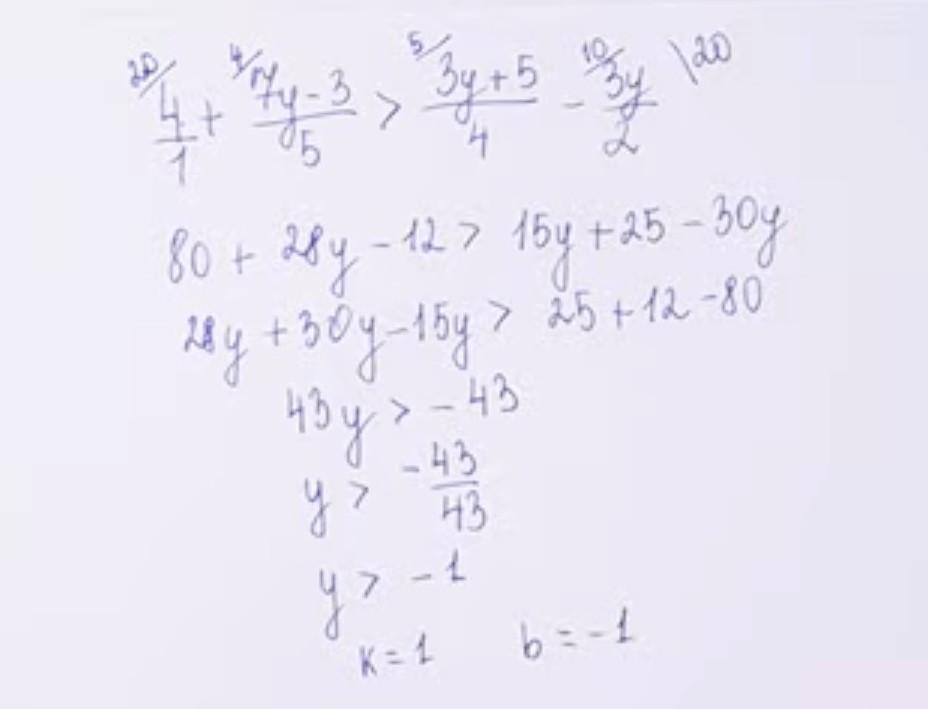 20/ 4/1 + 4/ (7y-3)/5 > 5/ (3y+5)/4 - 10/ 3y/2 \20
80 + 28y - 12 > 15y + 25 - 30y
28y + 30y - 15y > 25 + 12 - 80
43y > - 43
y > - 43/43
y > - 1
k = 1 b = - 1